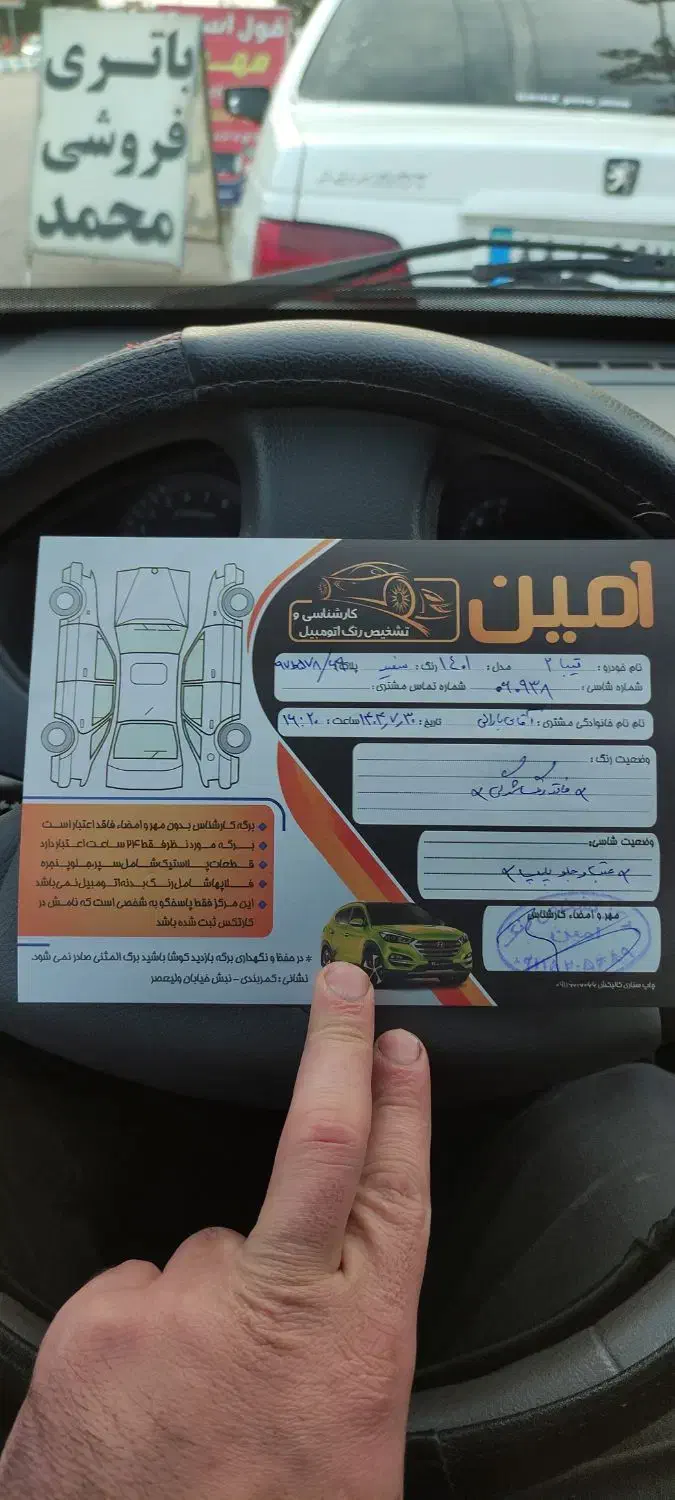 باتری
فروشی
محمد
امین
کارشناسی و
تشخیص رنگ اتومبیل
نام خودرو: تیبا ۲ مدل: ۱۴۰۱ رنگ: سفید پلاک:
شماره شاسی: ۰۶۰۹۳۸ شماره تماس مشتری:
نام نام خانوادگی مشتری: آقای بارانی تاریخ: ۱۴۰۴/۷/۳۰ ساعت: ۱۶:۲۰
وضعیت رنگ:
فاقد رنگ شدگی
وضعیت شاسی:
عقب و جلو پلمپ
مهر و امضاء کارشناس
برگه کارشناس بدون مهر و امضاء فاقد اعتبار است
برگه مورد نظر فقط ۲۴ ساعت اعتبار دارد
قطعات پلاستیک شامل سپر، جلو پنجره
فلاپها شامل رنگ بدنه اتومبیل نمی باشد
این مرکز فقط پاسخگو به شخصی است که نامش در
کارتکس ثبت شده باشد
* در حفظ و نگهداری برگه بازدید کوشا باشید برگ المثنی صادر نمی شود.
نشانی: کمربندی - نبش خیابان ولیعصر